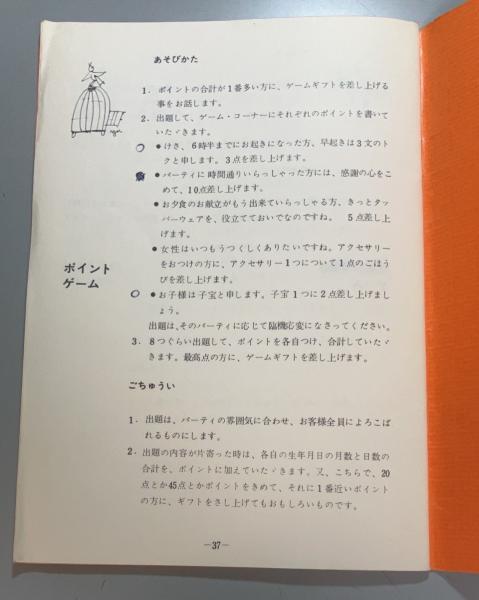 あそびかた
1. ポイントの合計が1番多い方に、ゲームギフトを差し上げる
事をお話します。
2. 出題して、ゲーム・コーナーにそれぞれのポイントを書いて
いたゞきます。
●けさ、6時半までにお起きになった方、早起きは3文のト
クと申します。3点を差し上げます。
●パーティに時間通りいらっしゃった方には、感謝の心をこ
めて、10点差し上げます。
●お夕食のお献立がもう出来ていらっしゃる方、きっとタッ
パーウェアを、役立てておいでなのですね。 5点差し上
げます。
●女性はいつもうつくしくありたいですね。アクセサリー
をおつけの方に、アクセサリー1つについて1点のごほう
びを差し上げます。
●お子様は子宝と申します。子宝1つに2点差し上げましょ
う。
出題は、そのパーティに応じて臨機応変になさってください。
3. 8つぐらい出題して、ポイントを各自つけ、合計していたゞ
きます。最高点の方に、ゲームギフトを差し上げます。
ポイント
ゲーム
ごちゅうい
1. 出題は、パーティの雰囲気に合わせ、お客様全員によろこば
れるものにします。
2. 出題の内容が片寄った時は、各自の生年月日の月数と日数の
合計を、ポイントに加えていたゞきます。又、こちらで、20
点とか45点とかポイントをきめて、それに1番近いポイント
の方に、ギフトをさし上げてもおもしろいものです。
—37—